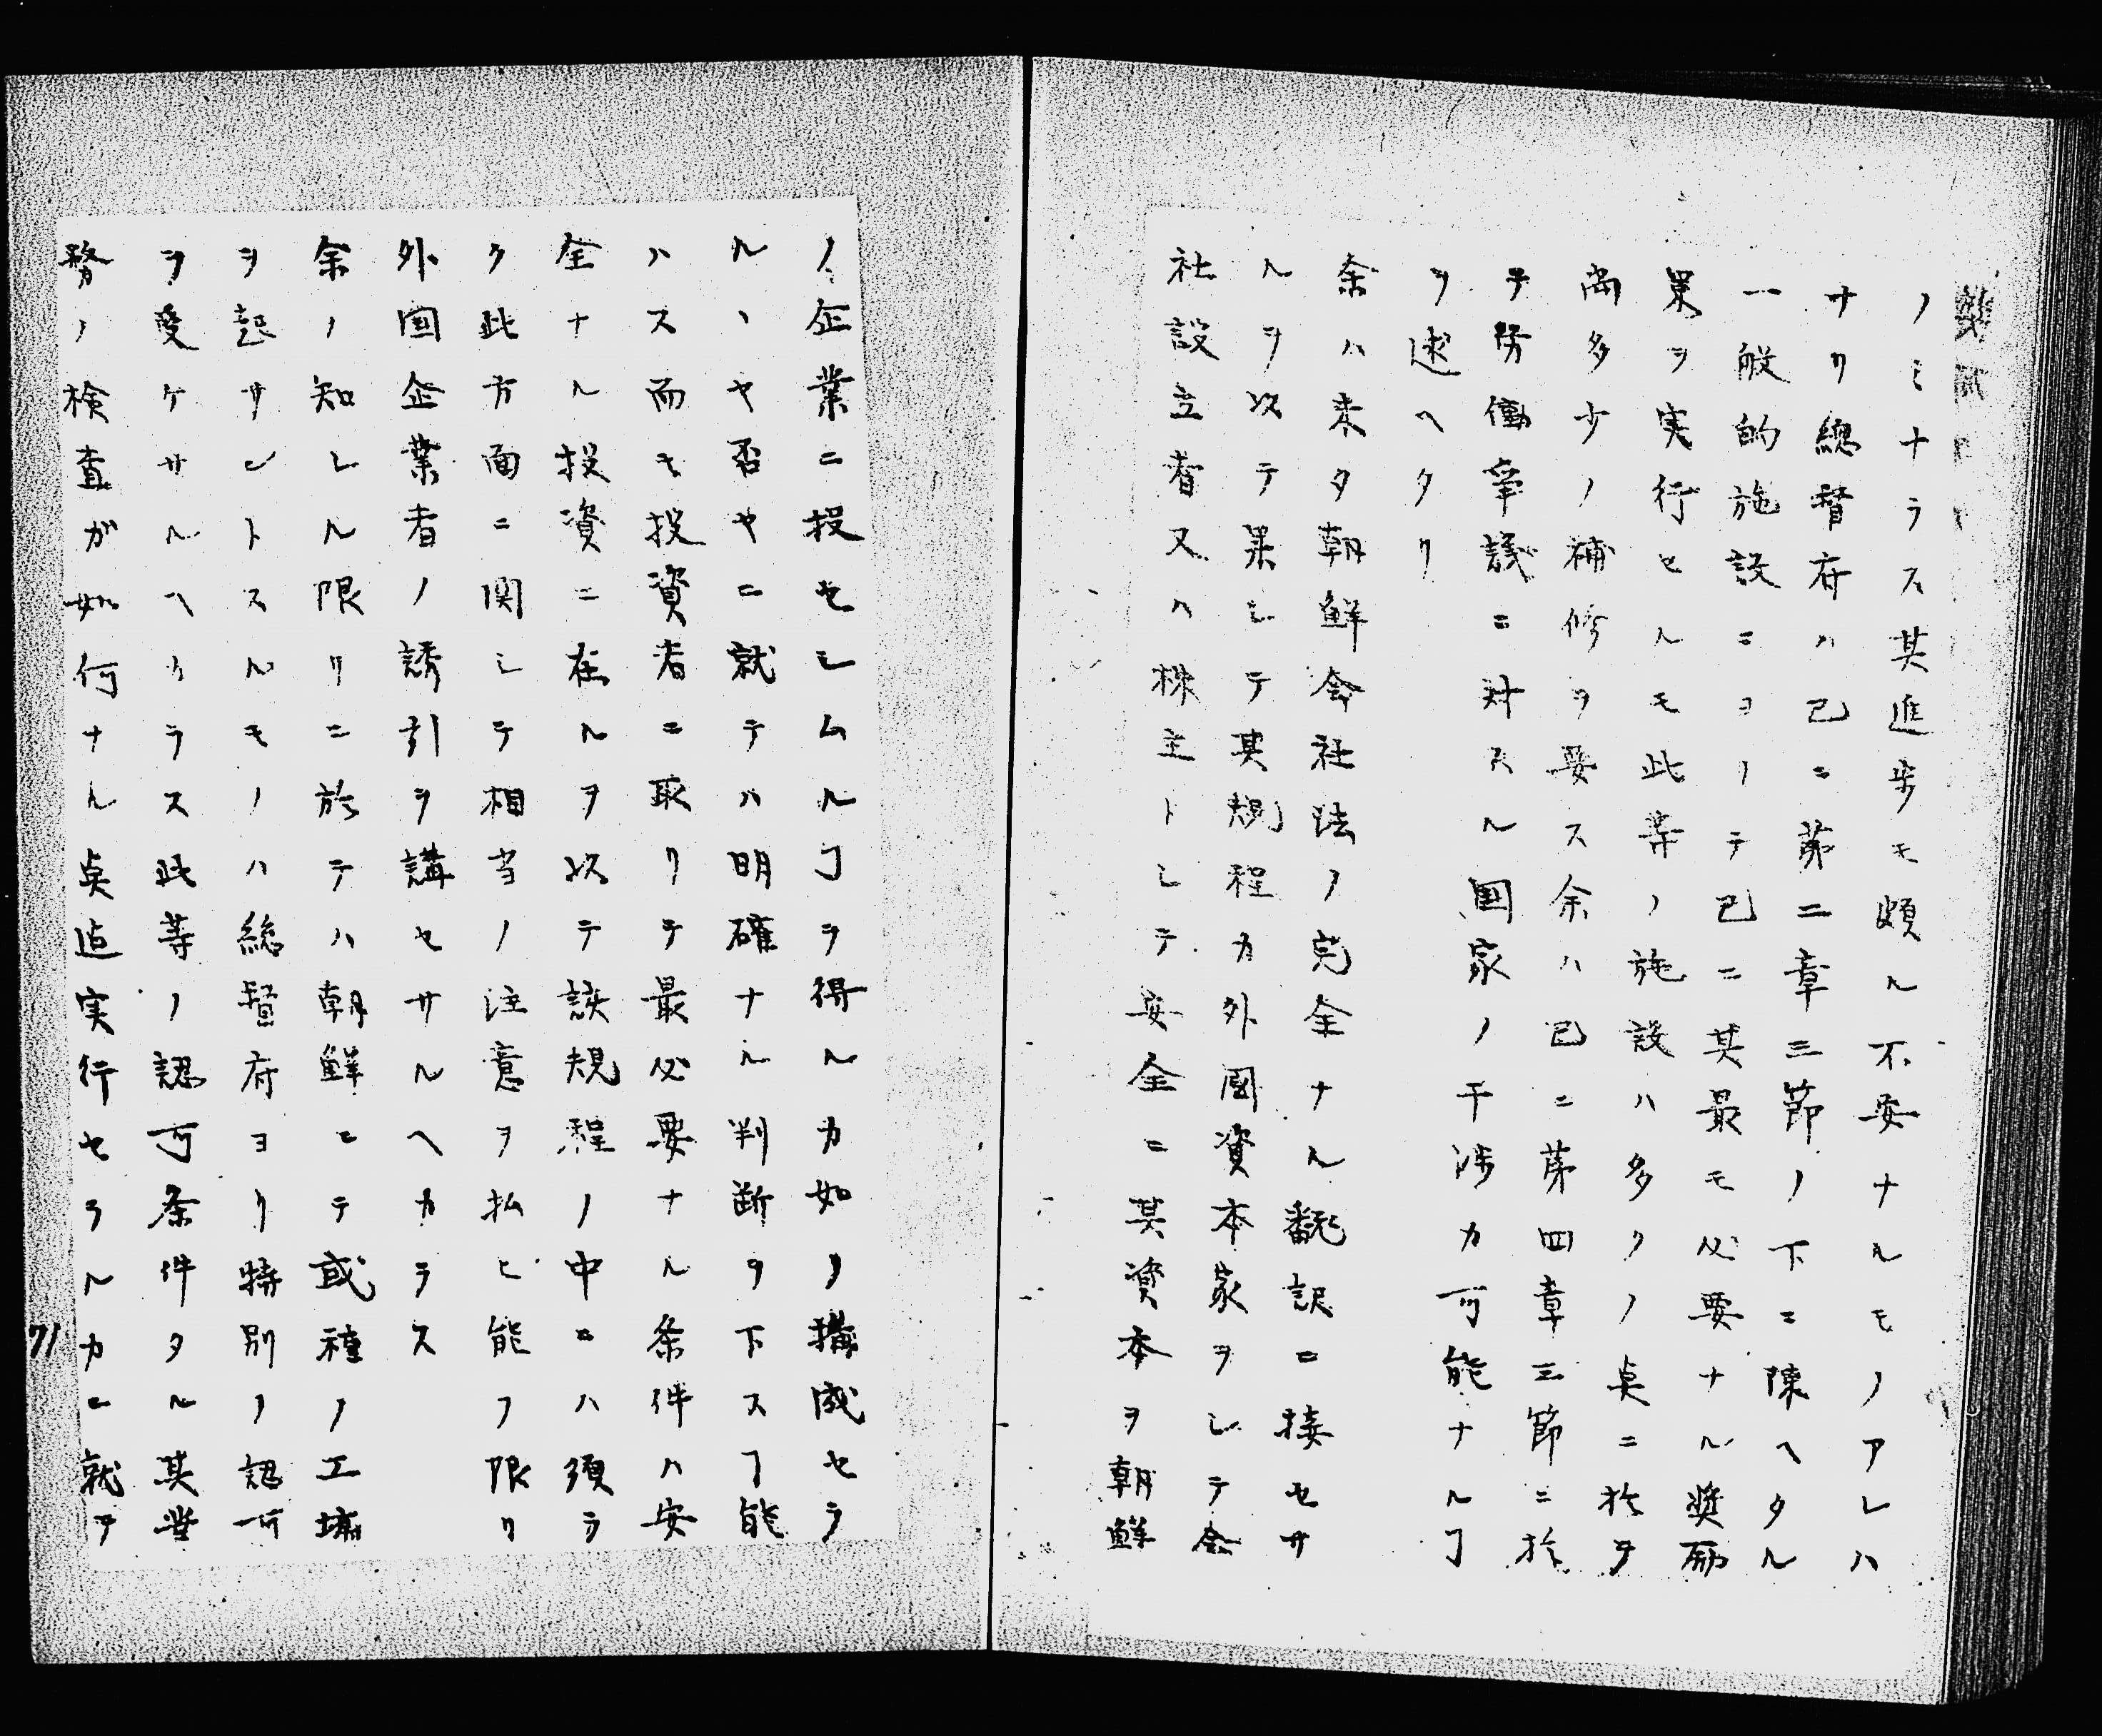 ノミナラス其進歩モ頗ル不安ナルモノアレハ
ナリ總督府ハ已ニ第二章三節ノ下ニ陳ヘタル
一般的施設ニヨリテ已ニ其最モ必要ナル奨励
策ヲ実行セルモ此等ノ施設ハ多クノ点ニ於テ
尚多少ノ補修ヲ要ス余ハ已ニ第四章三節ニ於
テ労働争議ニ対スル国家ノ干渉カ可能ナルヿ
ヲ述ヘタリ
余ハ未タ朝鮮会社法ノ完全ナル翻訳ニ接セサ
ルヲ以テ果シテ其規程カ外國資本家ヲシテ会
社設立者又ハ株主トシテ安全ニ其資本ヲ朝鮮
ノ企業ニ投セシムルヿヲ得ルカ如ク構成セラ
ルヽヤ否ヤニ就テハ明確ナル判断ヲ下スヿ能
ハス而モ投資者ニ取リテ最必要ナル条件ハ安
全ナル投資ニ在ルヲ以テ該規程ノ中ニハ須ラ
ク此方面ニ関シテ相当ノ注意ヲ払ヒ能フ限リ
外国企業者ノ誘引ヲ講セサルヘカラス
余ノ知レル限リニ於テハ朝鮮ニテ或種ノ工場
ヲ起サントスルモノハ総督府ヨリ特別ノ認可
ヲ受ケサルヘカラス此等ノ認可条件タル其営
務ノ検査ガ如何ナル点迄実行セラルルカニ就テ
71